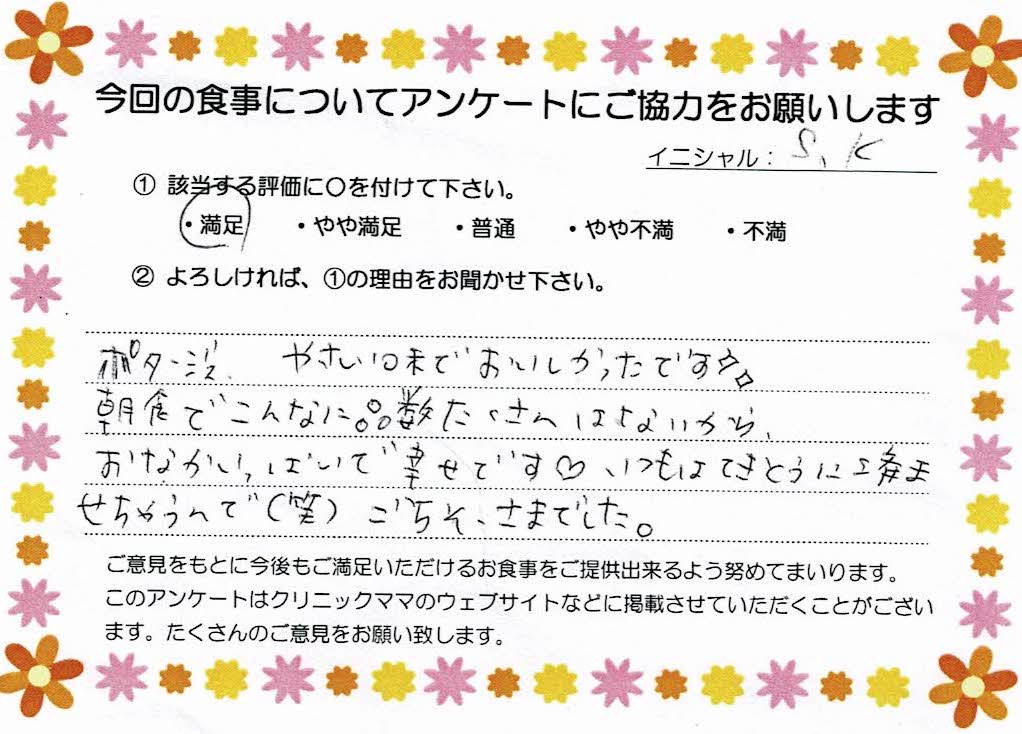 今回の食事についてアンケートにご協力をお願いします
イニシャル： S.K
① 該当する評価に○を付けて下さい。
・満足 ・やや満足 ・普通 ・やや不満 ・不満
② よろしければ、①の理由をお聞かせ下さい。
ポタージュ、やさい日末でおいしかったです
朝食でこんなに品数たくさんはないから、
おなかいっぱいで幸せです♡いつもはてきとうに済ま
せちゃうんで(笑) ごちそうさまでした。
ご意見をもとに今後もご満足いただけるお食事をご提供出来るよう努めてまいります。
このアンケートはクリニックママのウェブサイトなどに掲載させていただくことがござい
ます。たくさんのご意見をお願い致します。